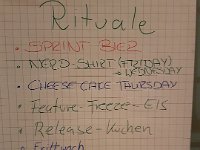 Rituale
• SPRINT BIER
• NERD-SHIRT (FRIDAY)
→ WEDNESDAY
• CHEESE CAKE THURSDAY
• Feature-Freeze-Eis
• Release-Kuchen
• Frittwoch